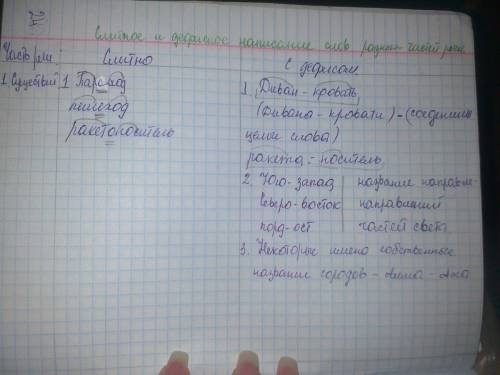 Слитное и дефисное написание слов разных частей речи
Части речи: Слитно С дефисом
1. Существит 1 Пароход
пешеход
ракетоноситель
1. Диван - кровать
(Дивана - кровати) - (соединены
целые слова)
ракета - носитель
2. Юго-запад | название направле-
Северо-восток | направлений
норд-ост | частей света
3. Некоторые имена собственные
название городов - Алма - Ата